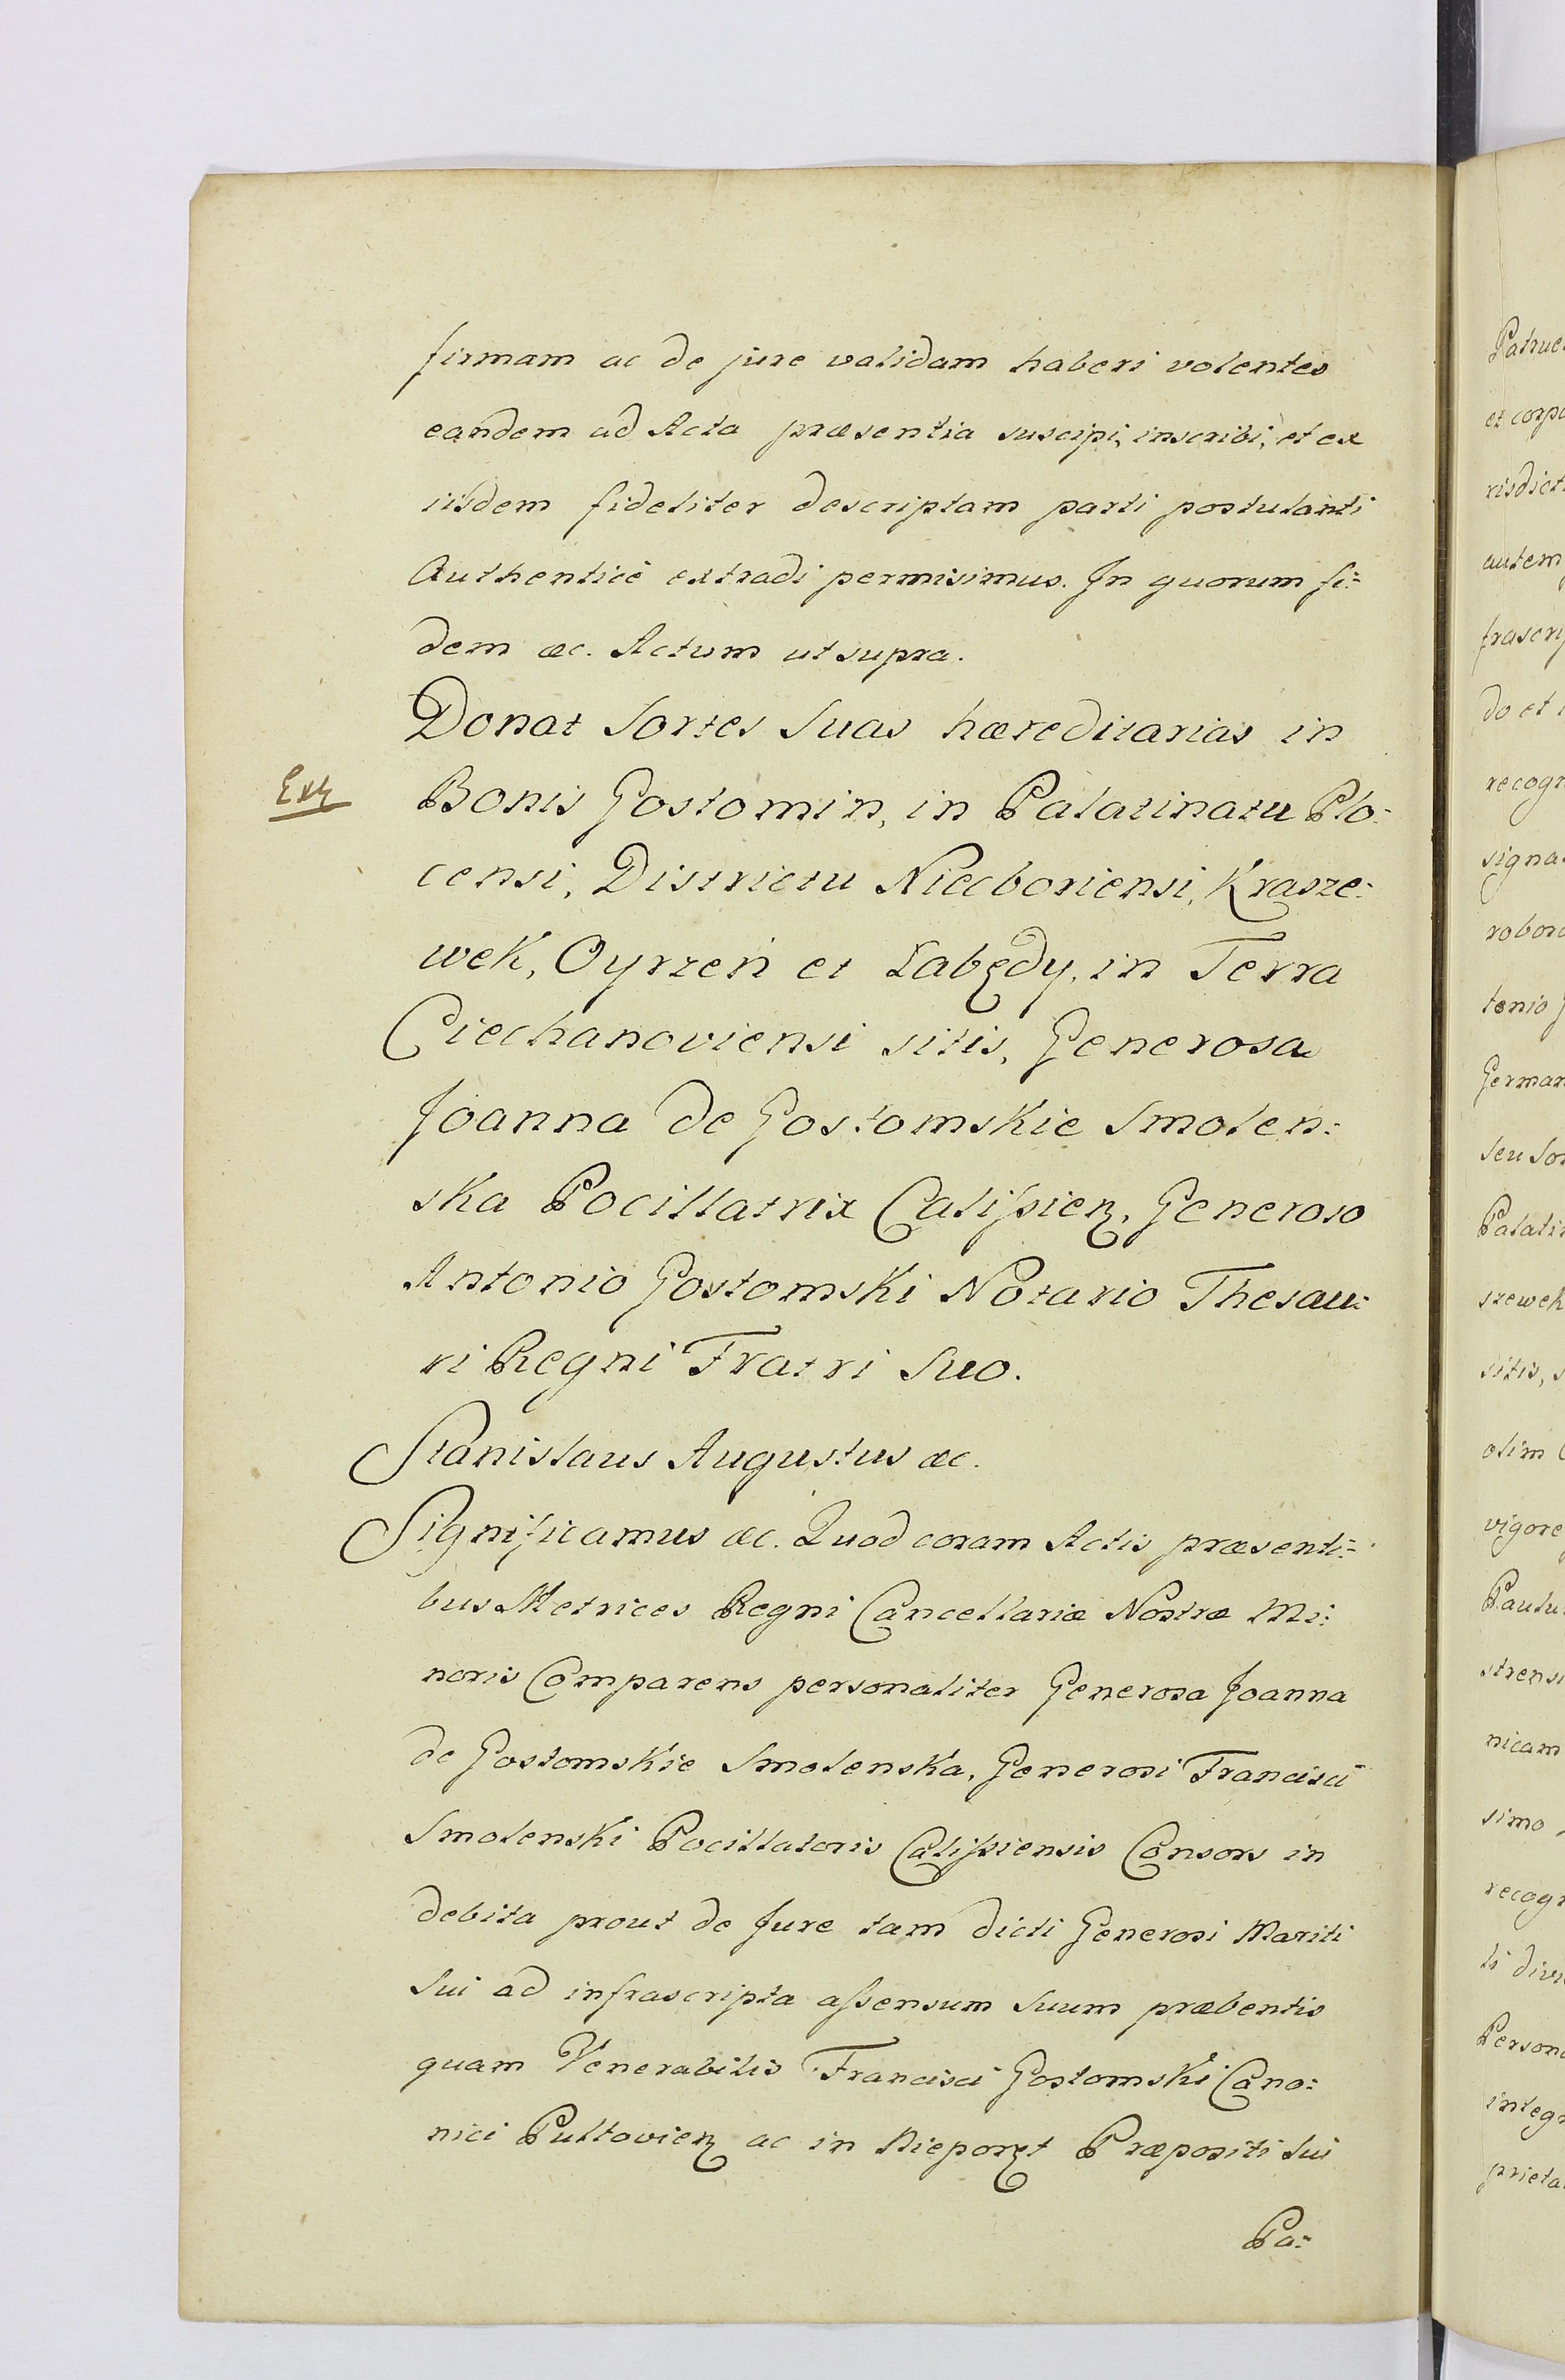 firmam ac de jure validam haberi volentes
eandem ad Acta præsentia suscipi, inscribi, et ex
iisdem fideliter descriptam parti postulanti
Authenticè extradi permisimus. In quorum fi=
dem &c. Actum ut supra.
Donat Sortes Suas hæreditarias in
Bonis Gostomin, in Palatinatu Plo=
censi, Districtu Niedboriensi, Krasze=
wek, Oyrzeń et Łabędy, in Terra
Ciechanoviensi sitis, Generosa
Joanna de Gostomskie Smolen=
ska Pocillatrix Calisien, Generoso
Antonio Gostomski Notario Thesau=
ri Regni Fratri Suo.
Stanislaus Augustus &c.
Significamus &c. Quod coram Actis præsenti=
bus Metrices Regni Cancellariæ Nostræ Mi=
noris Comparens personaliter Generosa Joanna
de Gostomskie Smolenska, Generosi Francisci
Smolenski Pocillatoris Calissiensis Consors in
debita prout de Jure tam dicti Generosi Mariti
Sui ad infrascripta assensum Suum præbentis
quam Venerabilis Francisci Gostomski Cano=
nici Pultovien ac in Nieporęt Præpositi Sui
Pa=
Patrue
et corpo
risdict
autem
frascri
do et
recogn
signa
robor
tonio
German
seu So
Palati
szewek
sitis,
olim
vigore
Paulu
strensi
nicam
simo
recogn
li div
Person
integ
prieta